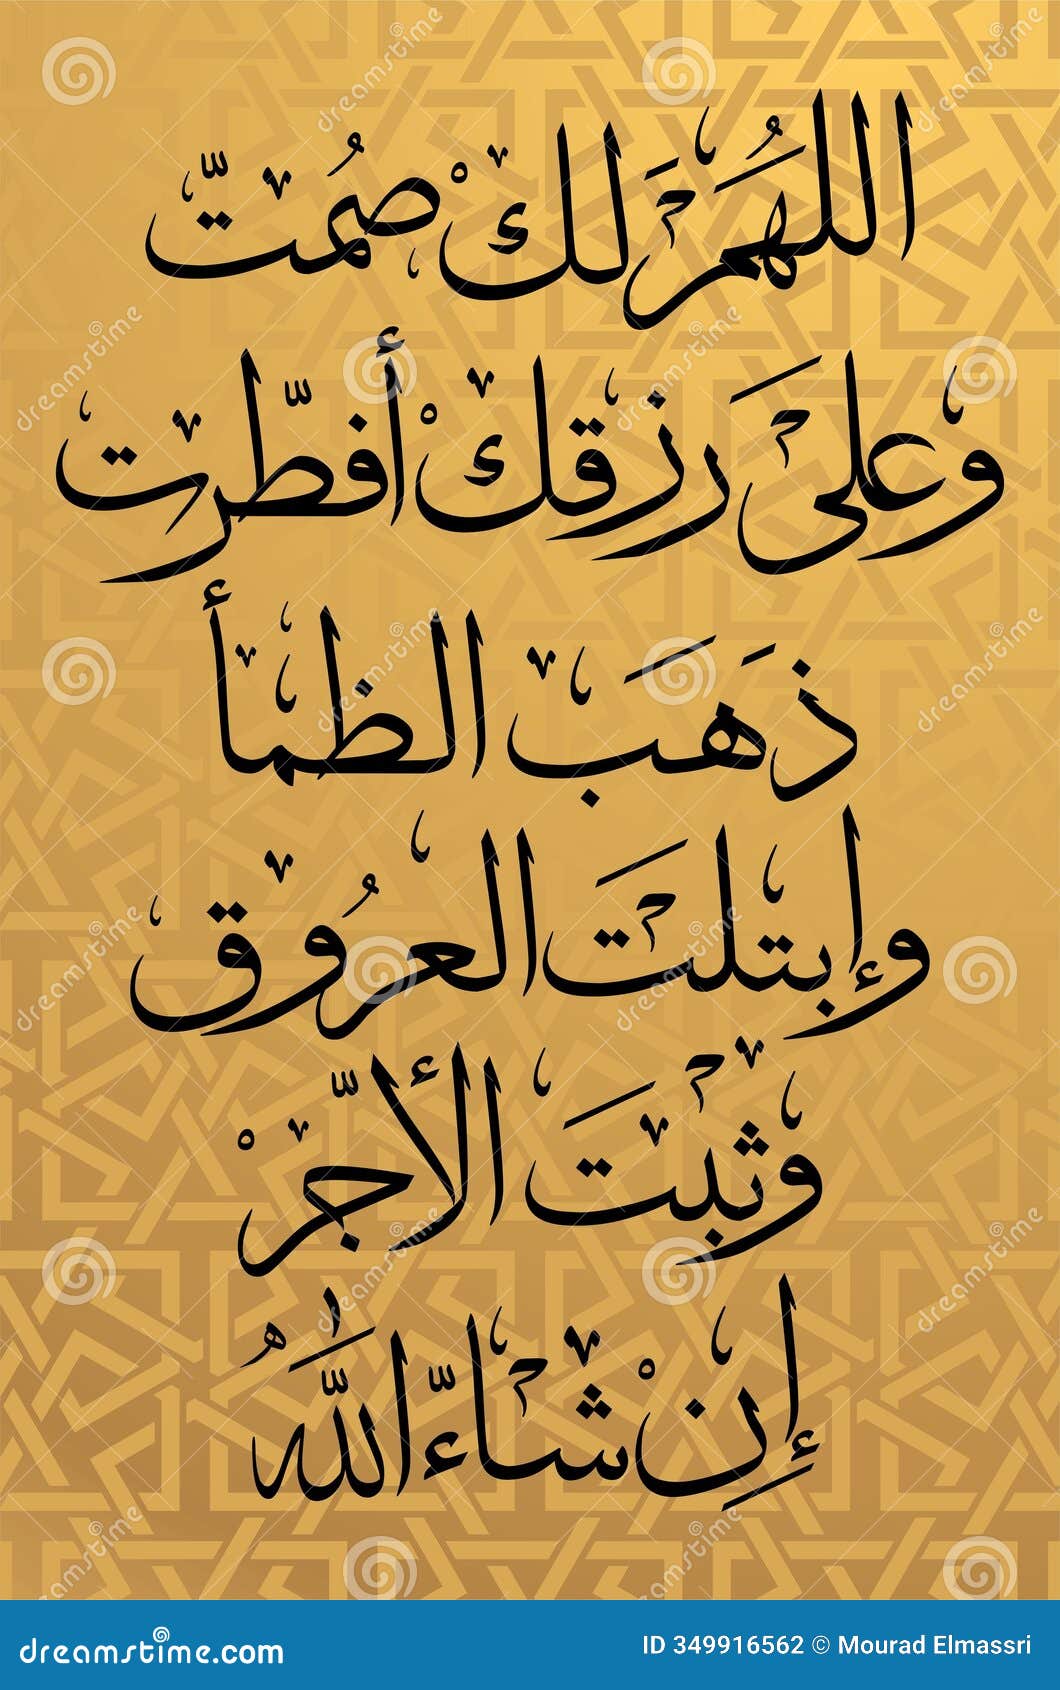 اللهُمَ لك صُمت
وعلىَ رزقك أفطرت
ذهَبَ الظمأ
وإبتلتَ العرُوق
وثبتَ الأجر
إنِ شاء الله
dreamstime.com
ID 349916562 © Mourad Elmassri